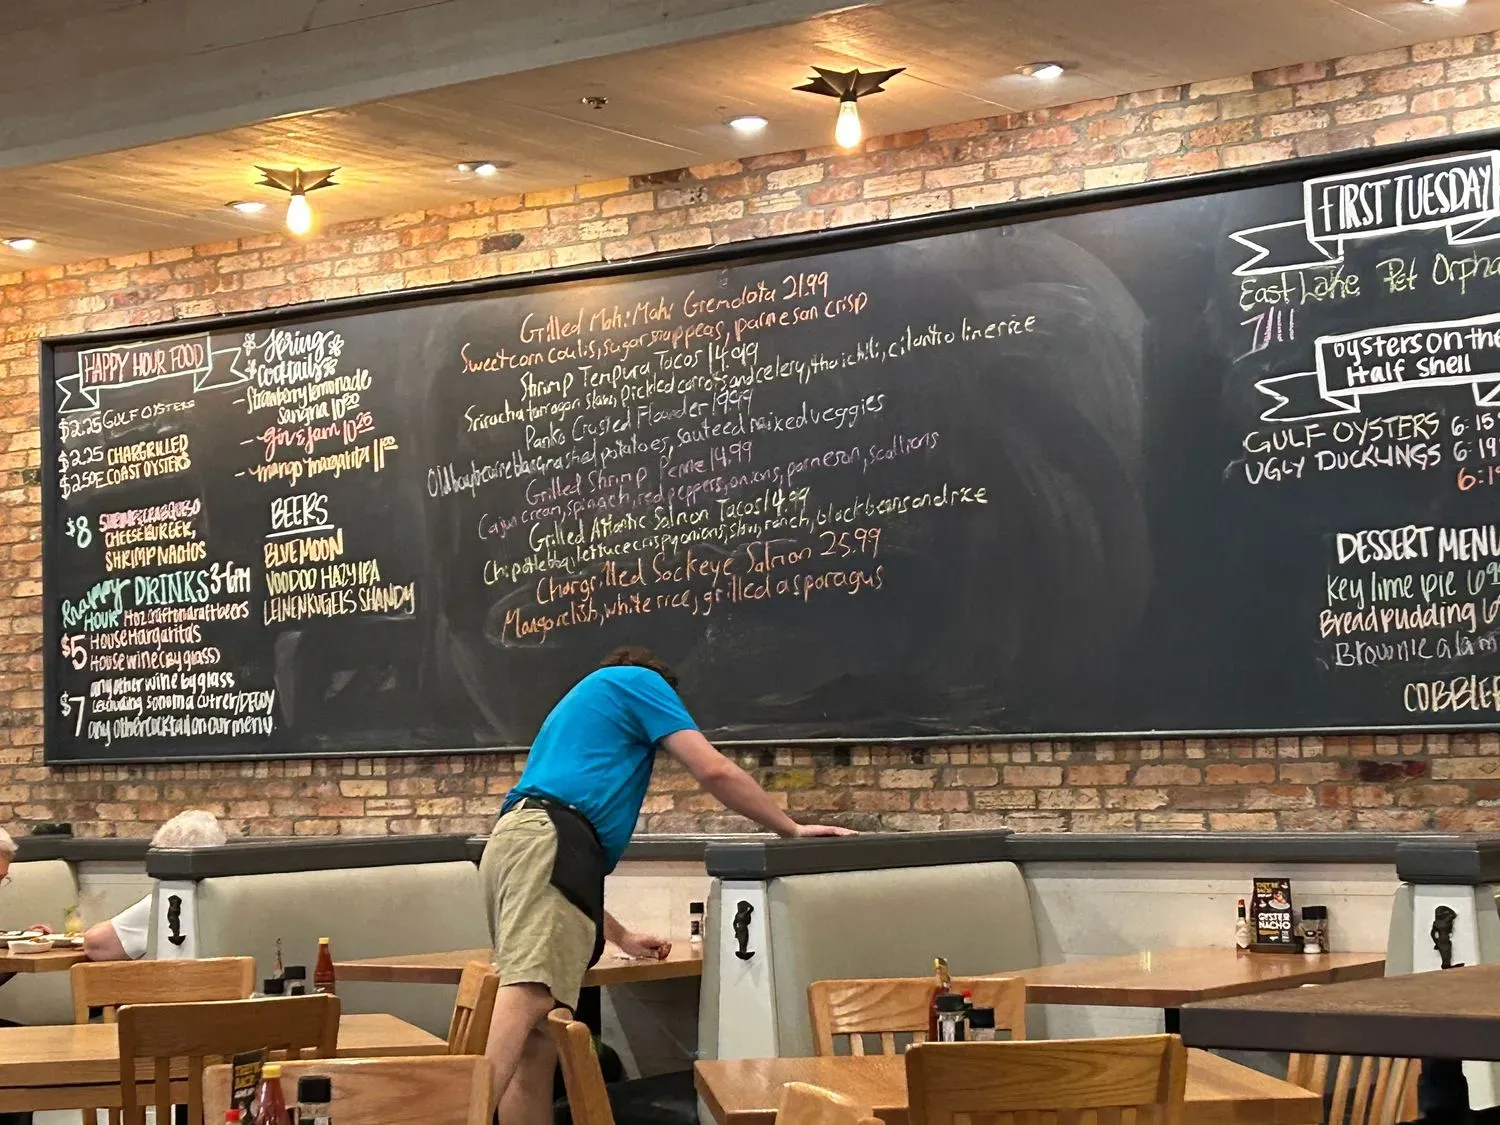 HAPPY HOUR FOOD
$2.25 GULF OYSTERS
$2.25 CHARGRILLED
$2.50 E.COAST OYSTERS
$8
CHEESEBURGER,
SHRIMP NACHOS
Happy HOUR DRINKS 3-6pm
$5
House Margaritas
House wine (by glass)
$7
any other wine by glass
(excluding sonoma cutrer/DECOY
any other cocktail on our menu.
Spring
Cocktails
- Strawberry lemonade
Sangria 10.50
- gin & jam 10.25
- mango margarita 11.00
BEERS
BLUE MOON
VOODOO HAZY IPA
LEINENKUGELS SHANDY
Grilled Mahi Mahi Gremolata 21.99
Sweetcorn coulis, sugar snap peas, parmesan crisp
Shrimp Tempura Tacos 14.99
Sriracha tarragon slaw, Pickled carrots and celery, thai chili, cilantro lime rice
Panko Crusted Flounder 19.99
mashed potatoes, sauteed mixed veggies
Grilled Shrimp Penne 14.99
Cajun cream, spinach, red peppers, onions, parmesan, scallions
Grilled Atlantic Salmon Tacos 14.99
Chipotle bbq, lettuce crispy onions, slaw, ranch, black beans and rice
Chargrilled Sockeye Salmon 25.99
Mango relish, white rice, grilled asparagus
FIRST TUESDAY
East Lake Pet Orpha
7/11
Oysters on the
Half Shell
GULF OYSTERS 6-15
UGLY DUCKLINGS 6-19
DESSERT MENU
Key lime pie
Bread pudding
Brownie
COBBLER
OYSTER
NACHO